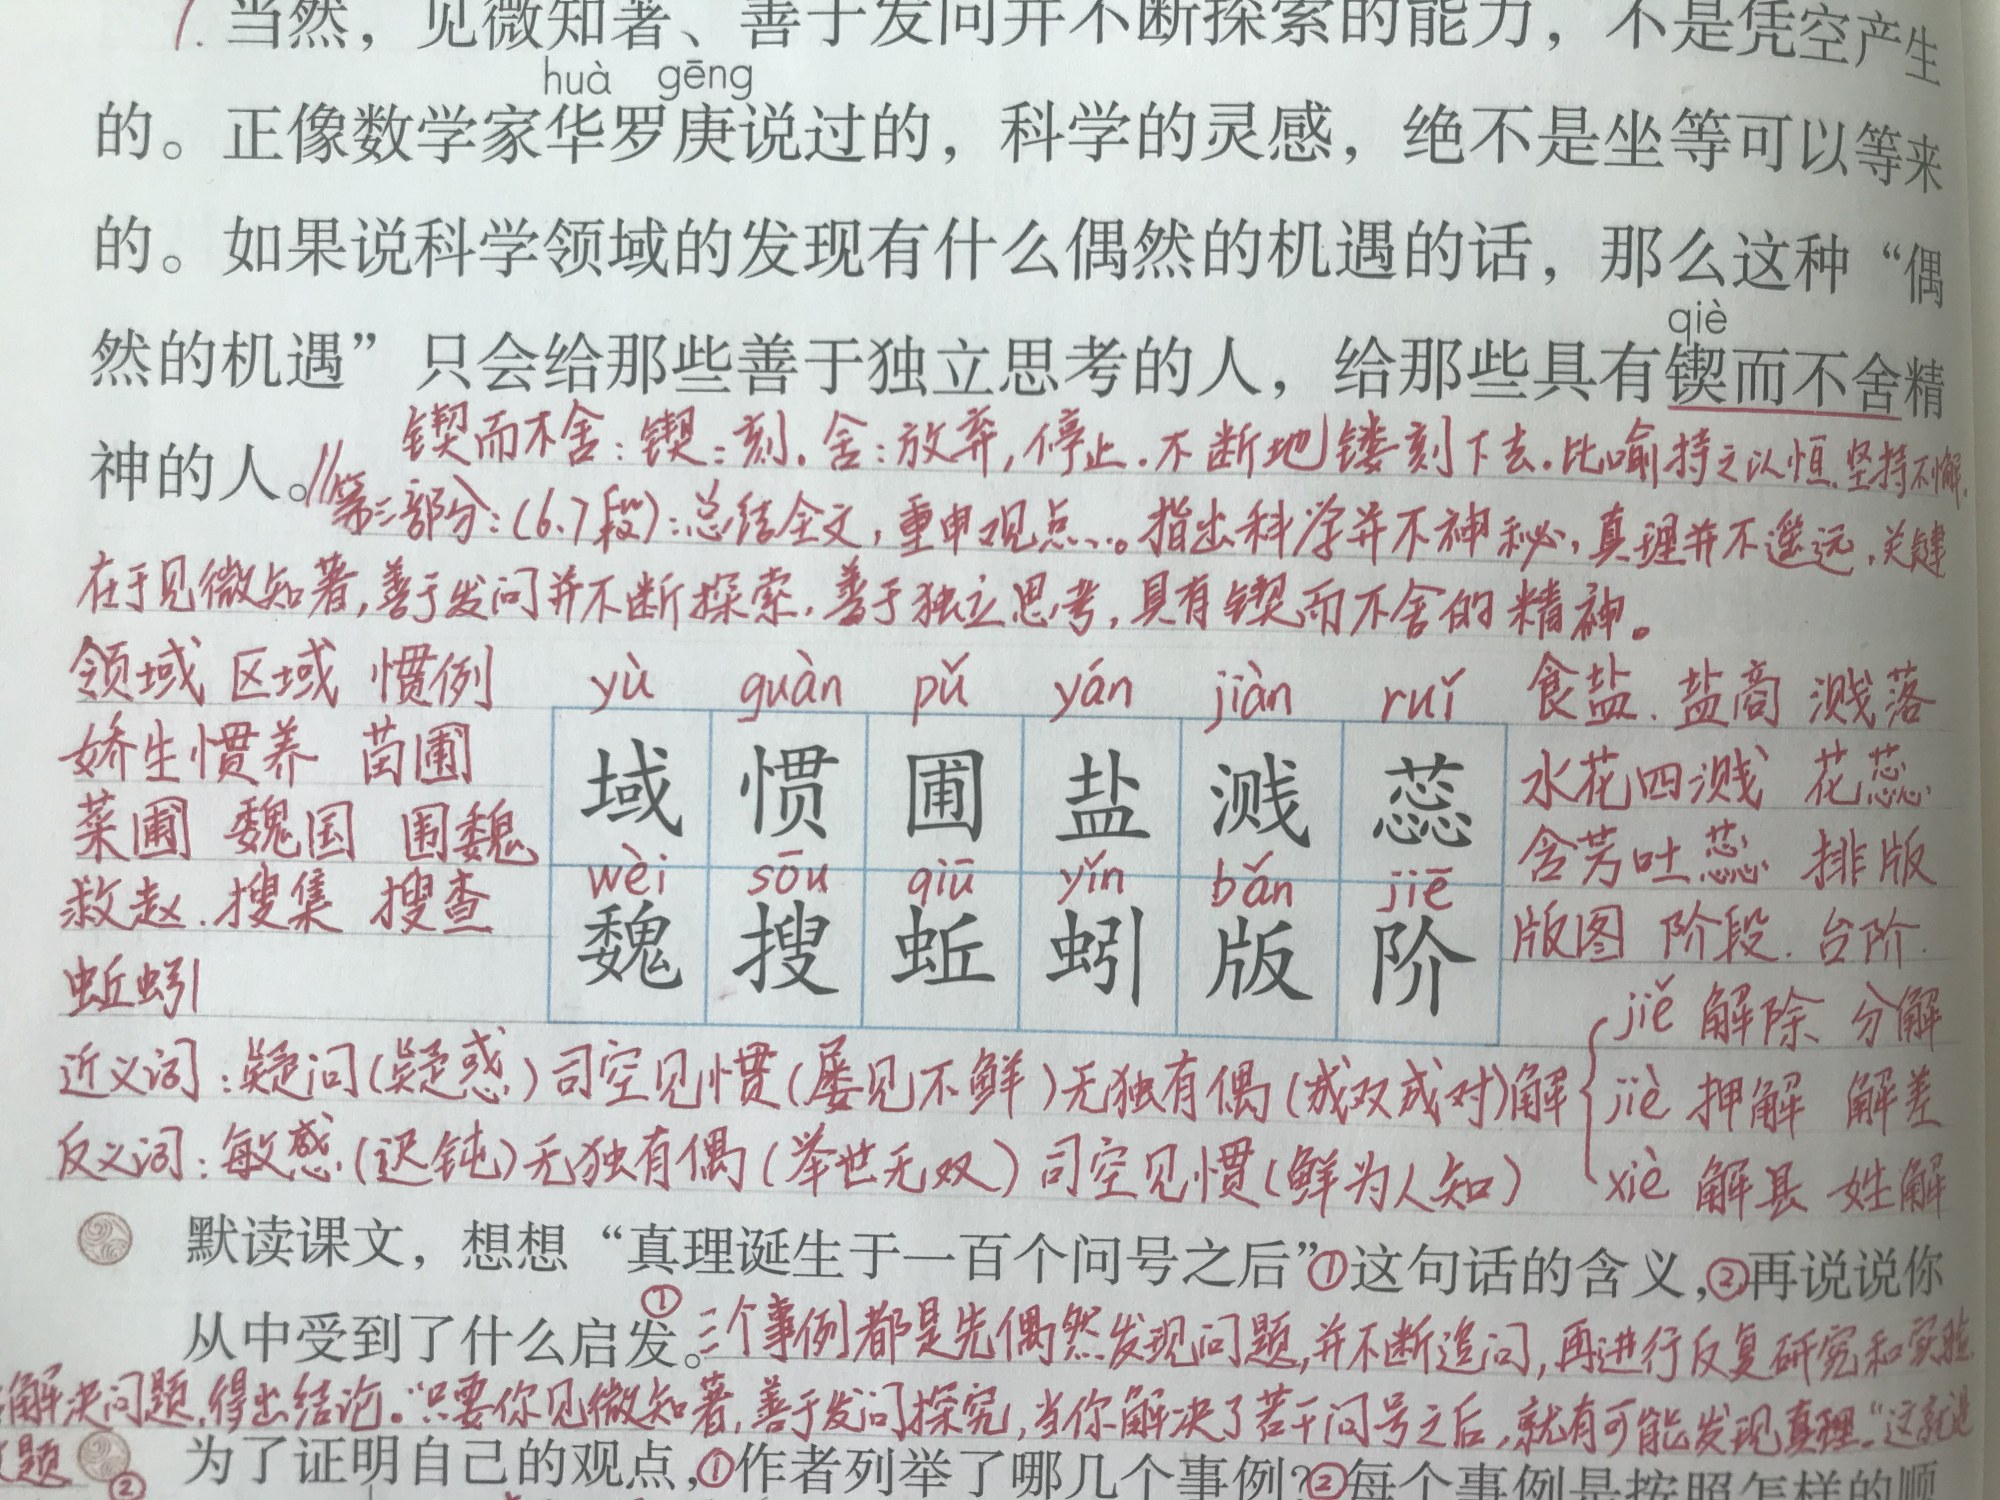 7. 当然，见微知著、善于发问并不断探索的能力，不是凭空产生
huà gēng
的。正像数学家华罗庚说过的，科学的灵感，绝不是坐等可以等来
的。如果说科学领域的发现有什么偶然的机遇的话，那么这种“偶
qiè
然的机遇”只会给那些善于独立思考的人，给那些具有锲而不舍精
神的人。
锲而不舍：锲：刻。舍：放弃，停止。不断地镂刻下去。比喻持之以恒、坚持不懈。
第三部分：（6、7段）：总结全文，重申观点...。指出科学并不神秘，真理并不遥远，关键
在于见微知著，善于发问并不断探索。善于独立思考，具有锲而不舍的精神。
领域 区域 惯例 yù guàn pǔ yán jiàn ruǐ 食盐、盐商 溅落
娇生惯养 苗圃 域 惯 圃 盐 溅 蕊 水花四溅 花蕊
菜圃 魏国 围魏 wèi sōu qiū yǐn bǎn jiē 含芳吐蕊 排版
救赵、搜集 搜查 魏 搜 蚯 蚓 版 阶 版图 阶段、台阶
蚯蚓 jiě 解除 分解
近义词：疑问（疑惑）司空见惯（屡见不鲜）无独有偶（成双成对）解 jiè 押解 解差
反义词：敏感（迟钝）无独有偶（举世无双）司空见惯（鲜为人知） xiè 解县 姓解
默读课文，想想“真理诞生于一百个问号之后”①这句话的含义，②再说说你
从中受到了什么启发。①三个事例都是先偶然发现问题，并不断追问，再进行反复研究和实验
解决问题，得出结论。“只要你见微知著，善于发问探究，当你解决了若干问号之后，就有可能发现真理。”这就是
题 ② 为了证明自己的观点，①作者列举了哪几个事例？②每个事例是按照怎样的顺